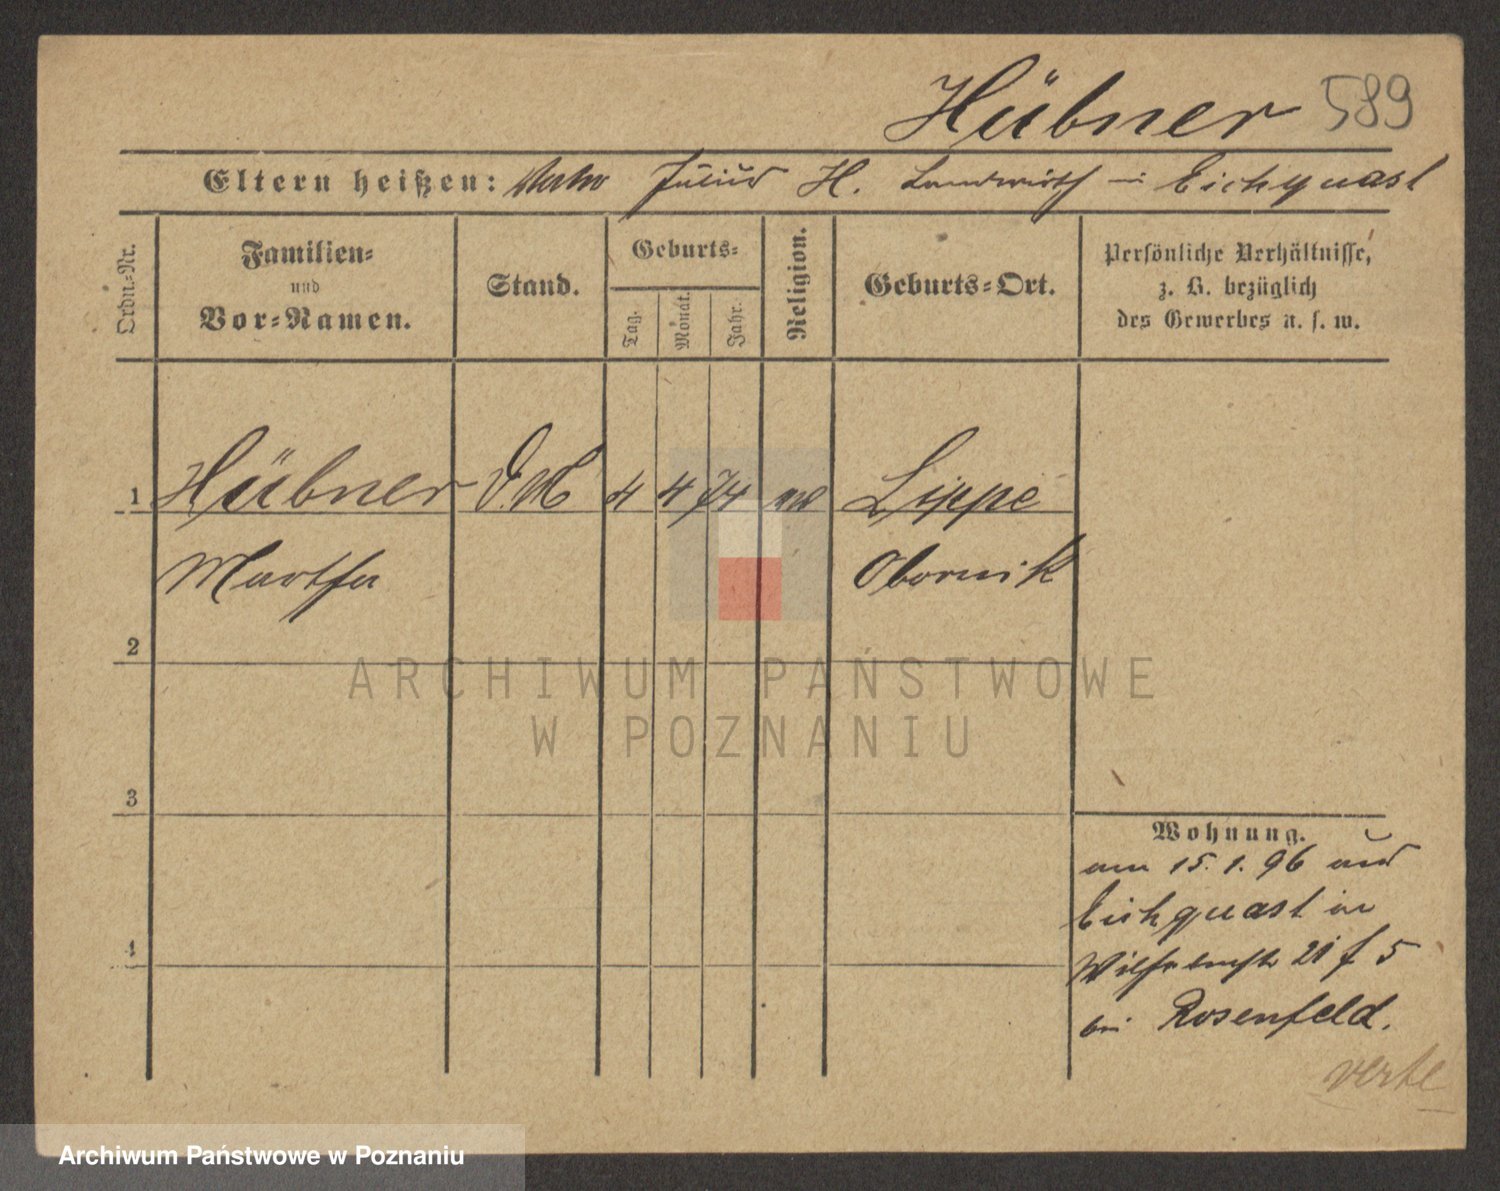 Hübner 589
Eltern heißen: Vater Julius H. Landwirth in Eichquast
Ordn.-Nr.
Familien-
und
Vor-Namen.
Stand.
Geburts-
Tag.
Monat.
Jahr.
Religion.
Geburts-Ort.
Persönliche Verhältnisse,
z. B. bezüglich
des Gewerbes u. s. w.
1 Hübner D.M 4 4 74 Lippe
Martha Obornik
2
3
4
Wohnung.
am 15. 1. 96 aus
Eichquast in
Wilhelmstr 21 b 5
bei Rosenfeld.
verte
ARCHIWUM PAŃSTWOWE
W POZNANIU
Archiwum Państwowe w Poznaniu